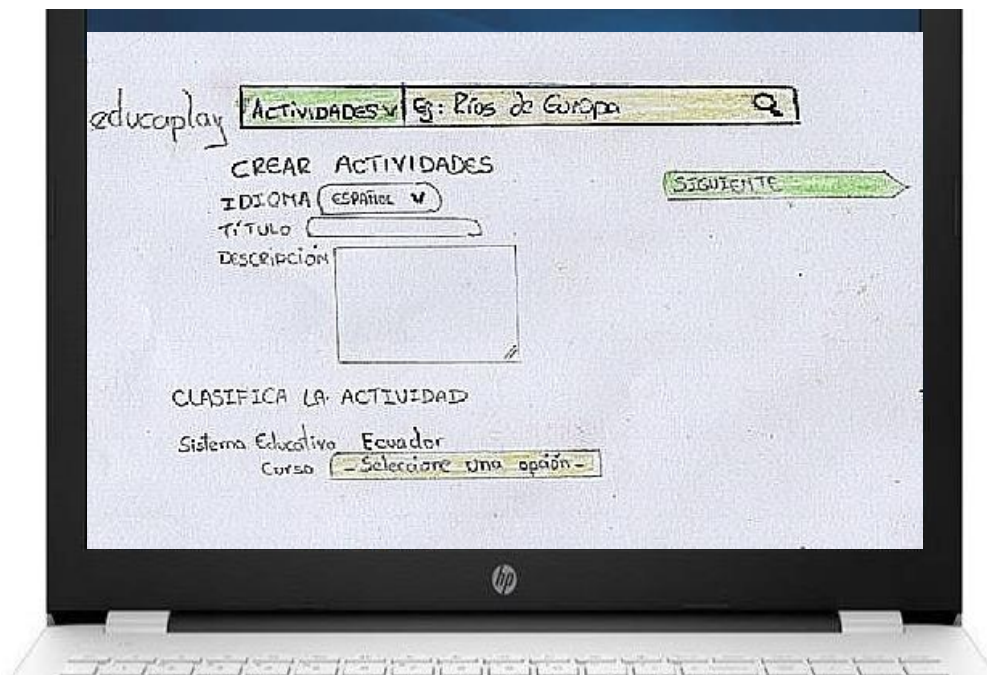 educaplay ACTIVIDADES Ej: Ríos de Europa
CREAR ACTIVIDADES
SIGUIENTE
IDIOMA ESPAÑOL
TÍTULO
DESCRIPCIÓN
CLASIFICA LA ACTIVIDAD
Sistema Educativo Ecuador
Curso - Seleccione una opción -
hp